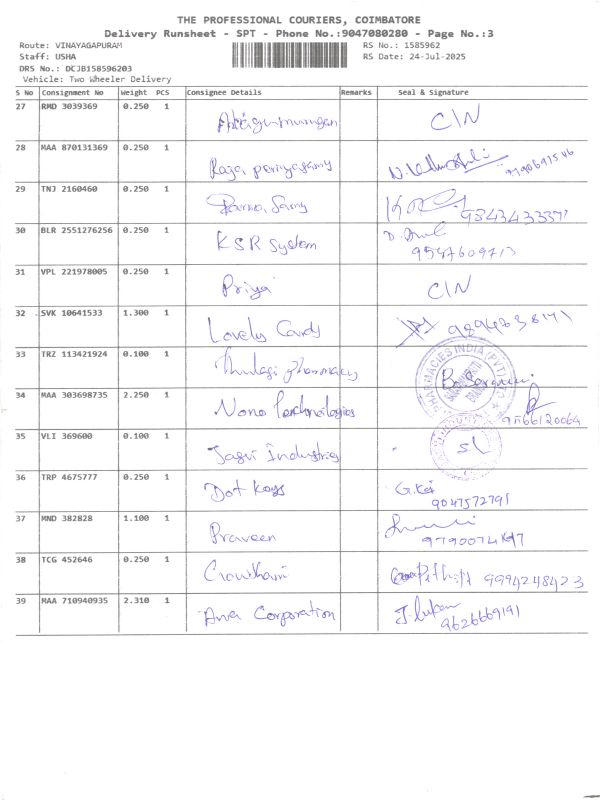 THE PROFESSIONAL COURIERS, COIMBATORE
Delivery Runsheet - SPT - Phone No.:9047080280 - Page No.:3
Route: VINAYAGAPURAM RS No.: 1585962
Staff: USHA RS Date: 24-Jul-2025
DRS No.: DCJB158596203
Vehicle: Two Wheeler Delivery
S No Consignment No Weight PCS Consignee Details Remarks Seal & Signature
27 RMD 3039369 0.250 1 C/N
28 MAA 870131369 0.250 1 Raja periyasamy
29 TNJ 2160460 0.250 1 Rama Samy
30 BLR 2551276256 0.250 1 KSR System
31 VPL 221978005 0.250 1 Priya C/N
32 SVK 10641533 1.300 1 Lovely Cards
33 TRZ 113421924 0.100 1 Thulasi pharmacy
PHARMACIES INDIA (PVT)
34 MAA 303698735 2.250 1 Nono Technologies
9566120064
35 VLI 369600 0.100 1
36 TRP 4675777 0.250 1 Dot Kays
9047572791
37 MND 382828 1.100 1 Praveen
38 TCG 452646 0.250 1 9994248423
39 MAA 710940935 2.310 1 Corporation
9626669191